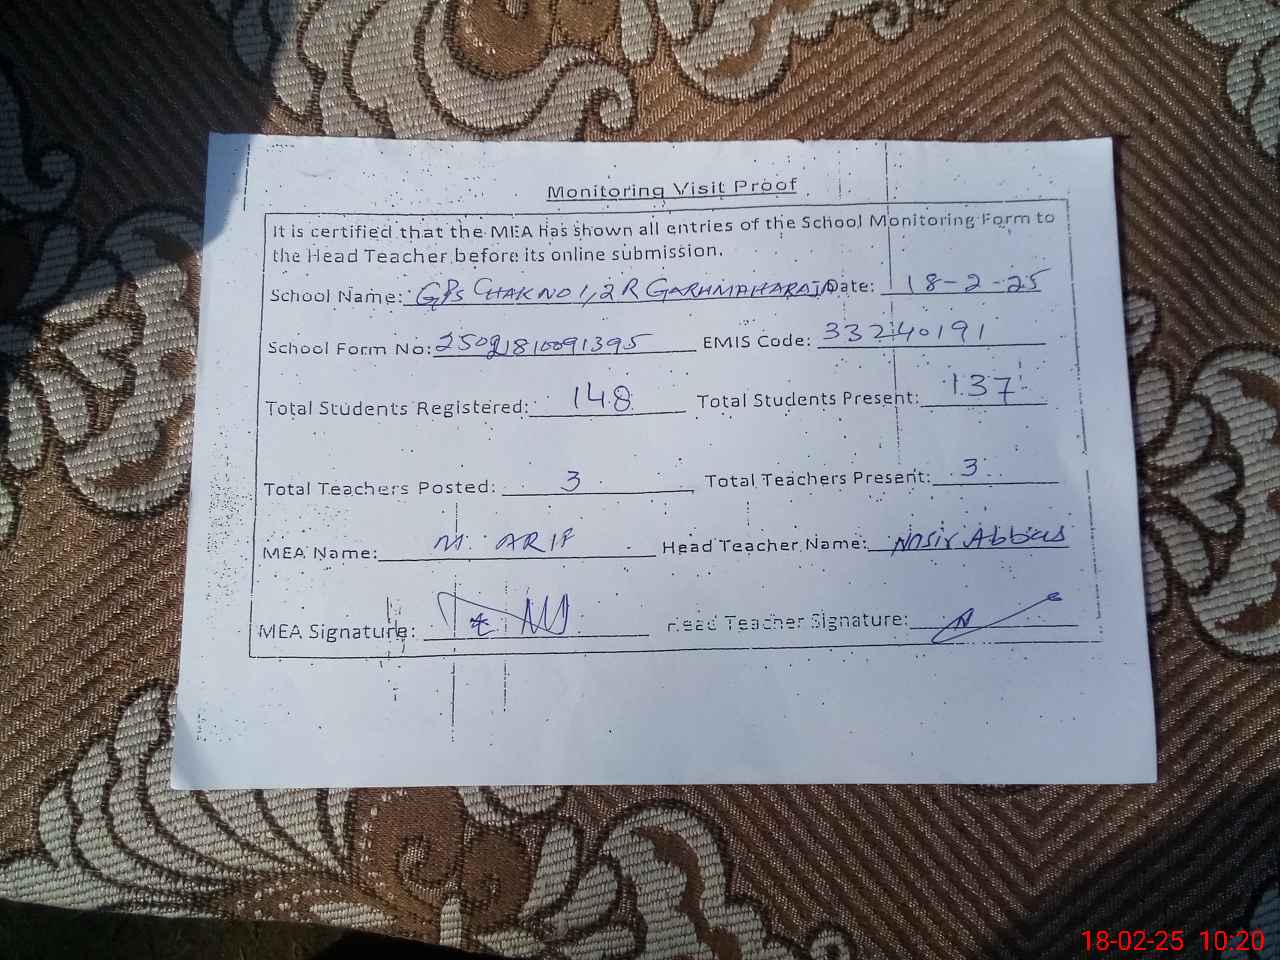 Monitoring Visit Proof
It is certified that the MEA has shown all entries of the School Monitoring Form to
the Head Teacher before its online submission.
School Name: GPS CHAK NO 1,2 R GARHMAHARAJA Date: 18-2-25
School Form No: 25021810091395 EMIS Code: 33240191
Total Students Registered: 148 Total Students Present: 137
Total Teachers Posted: 3 Total Teachers Present: 3
MEA Name: M. ARIF Head Teacher Name: Nasir Abbas
MEA Signature: Head Teacher Signature:
18-02-25 10:20